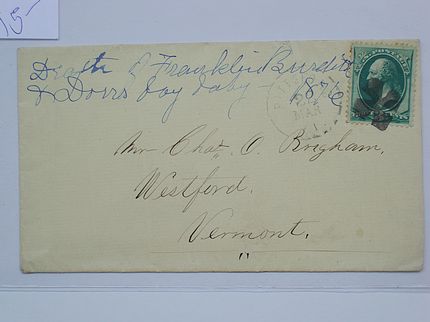 15-
Death of Franklin Burdit
& Dorrs boy baby - 1876
MAR
1
Mr Chas. O. Brigham,
Westford.
Vermont.
"